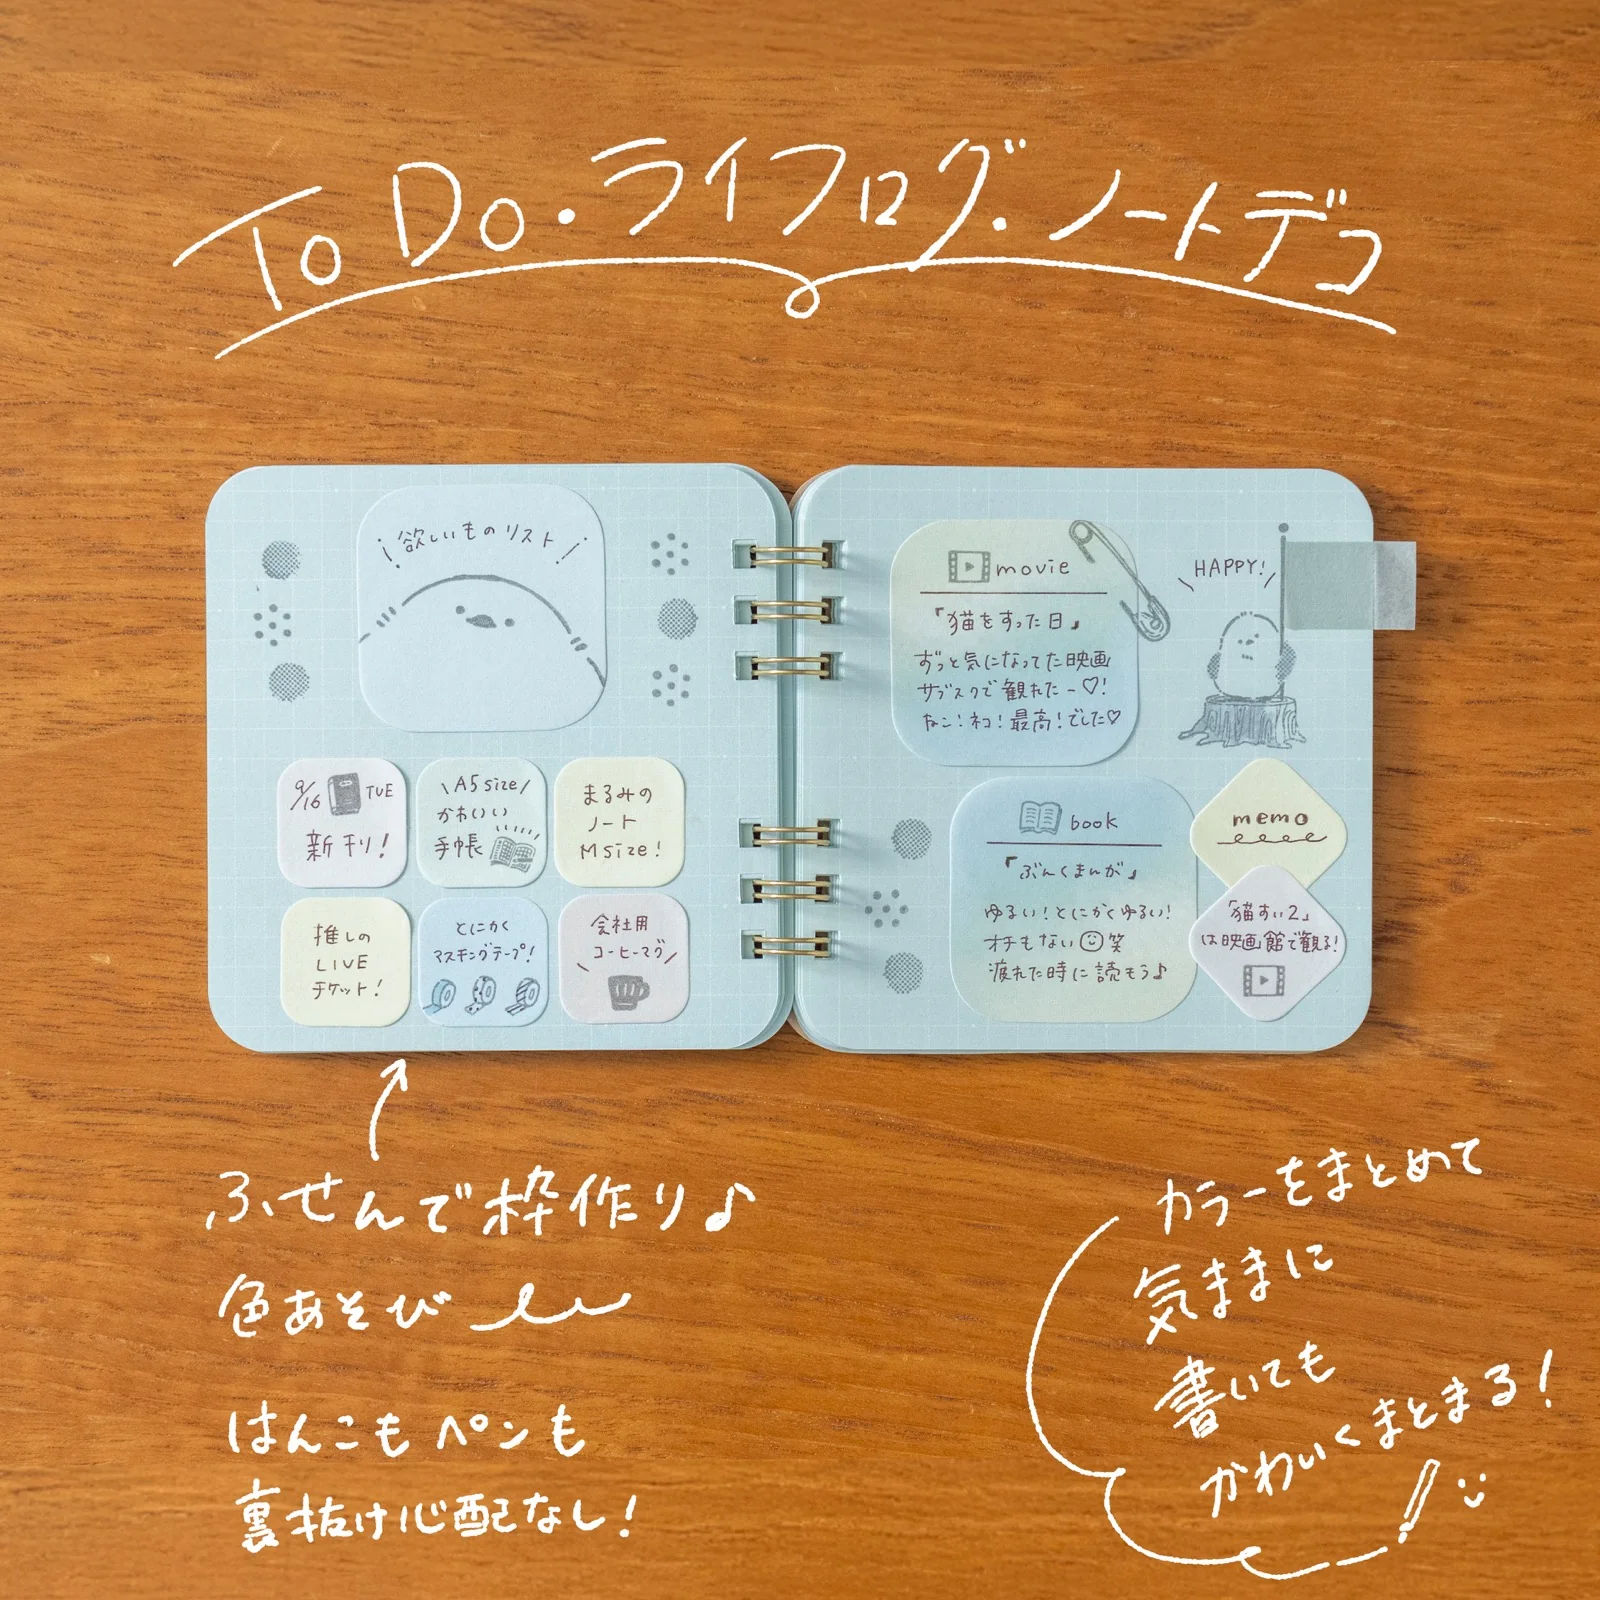 To Do・ライフログ・ノートデコ
欲しいものリスト
9/16 TUE
新刊!
A5 size
かわいい
手帳
まるみの
ノート
M size!
推しの
LIVE
チケット!
とにかく
マスキングテープ!
会社用
コーヒーマグ
movie
『猫をすった日』
ずっと気になってた映画
サブスクで観れたー♡!
ねこ!ネコ!最高!でした♡
HAPPY!
book
『ぶんくまんが』
ゆるい!とにかくゆるい!
オチもない☺笑
疲れた時に読もう♪
memo
「猫すい2」
は映画館で観る!
ふせんで枠作り♪
色あそび
はんこもペンも
裏抜け心配なし!
カラーをまとめて
気ままに
書いても
かわいくまとまる!